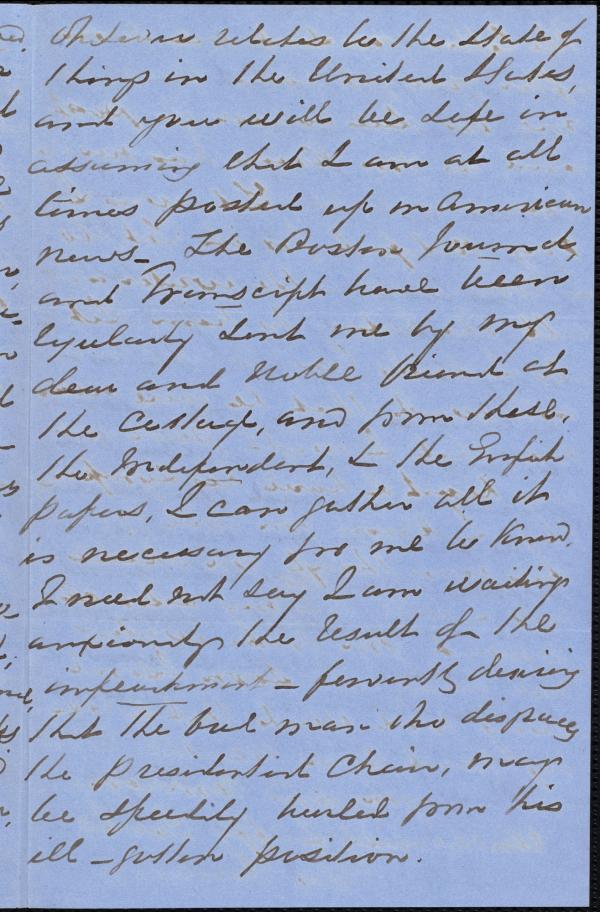 relates to the State of
things in the United States,
and you will be safe in
assuming that I am at all
times posted up in American
news – The Boston Journal,
and Transcript have been
regularly sent me by my
dear and noble friend at
the Cottage, and from these,
the Independent, & the English
papers, I can gather all it
is necessary for me to know.
I need not say I am waiting
anxiously the result of the
impeachment – fervently desiring
that the bad man who disgraces
the presidential Chair, may
be speedily hurled from his
ill-gotten position.